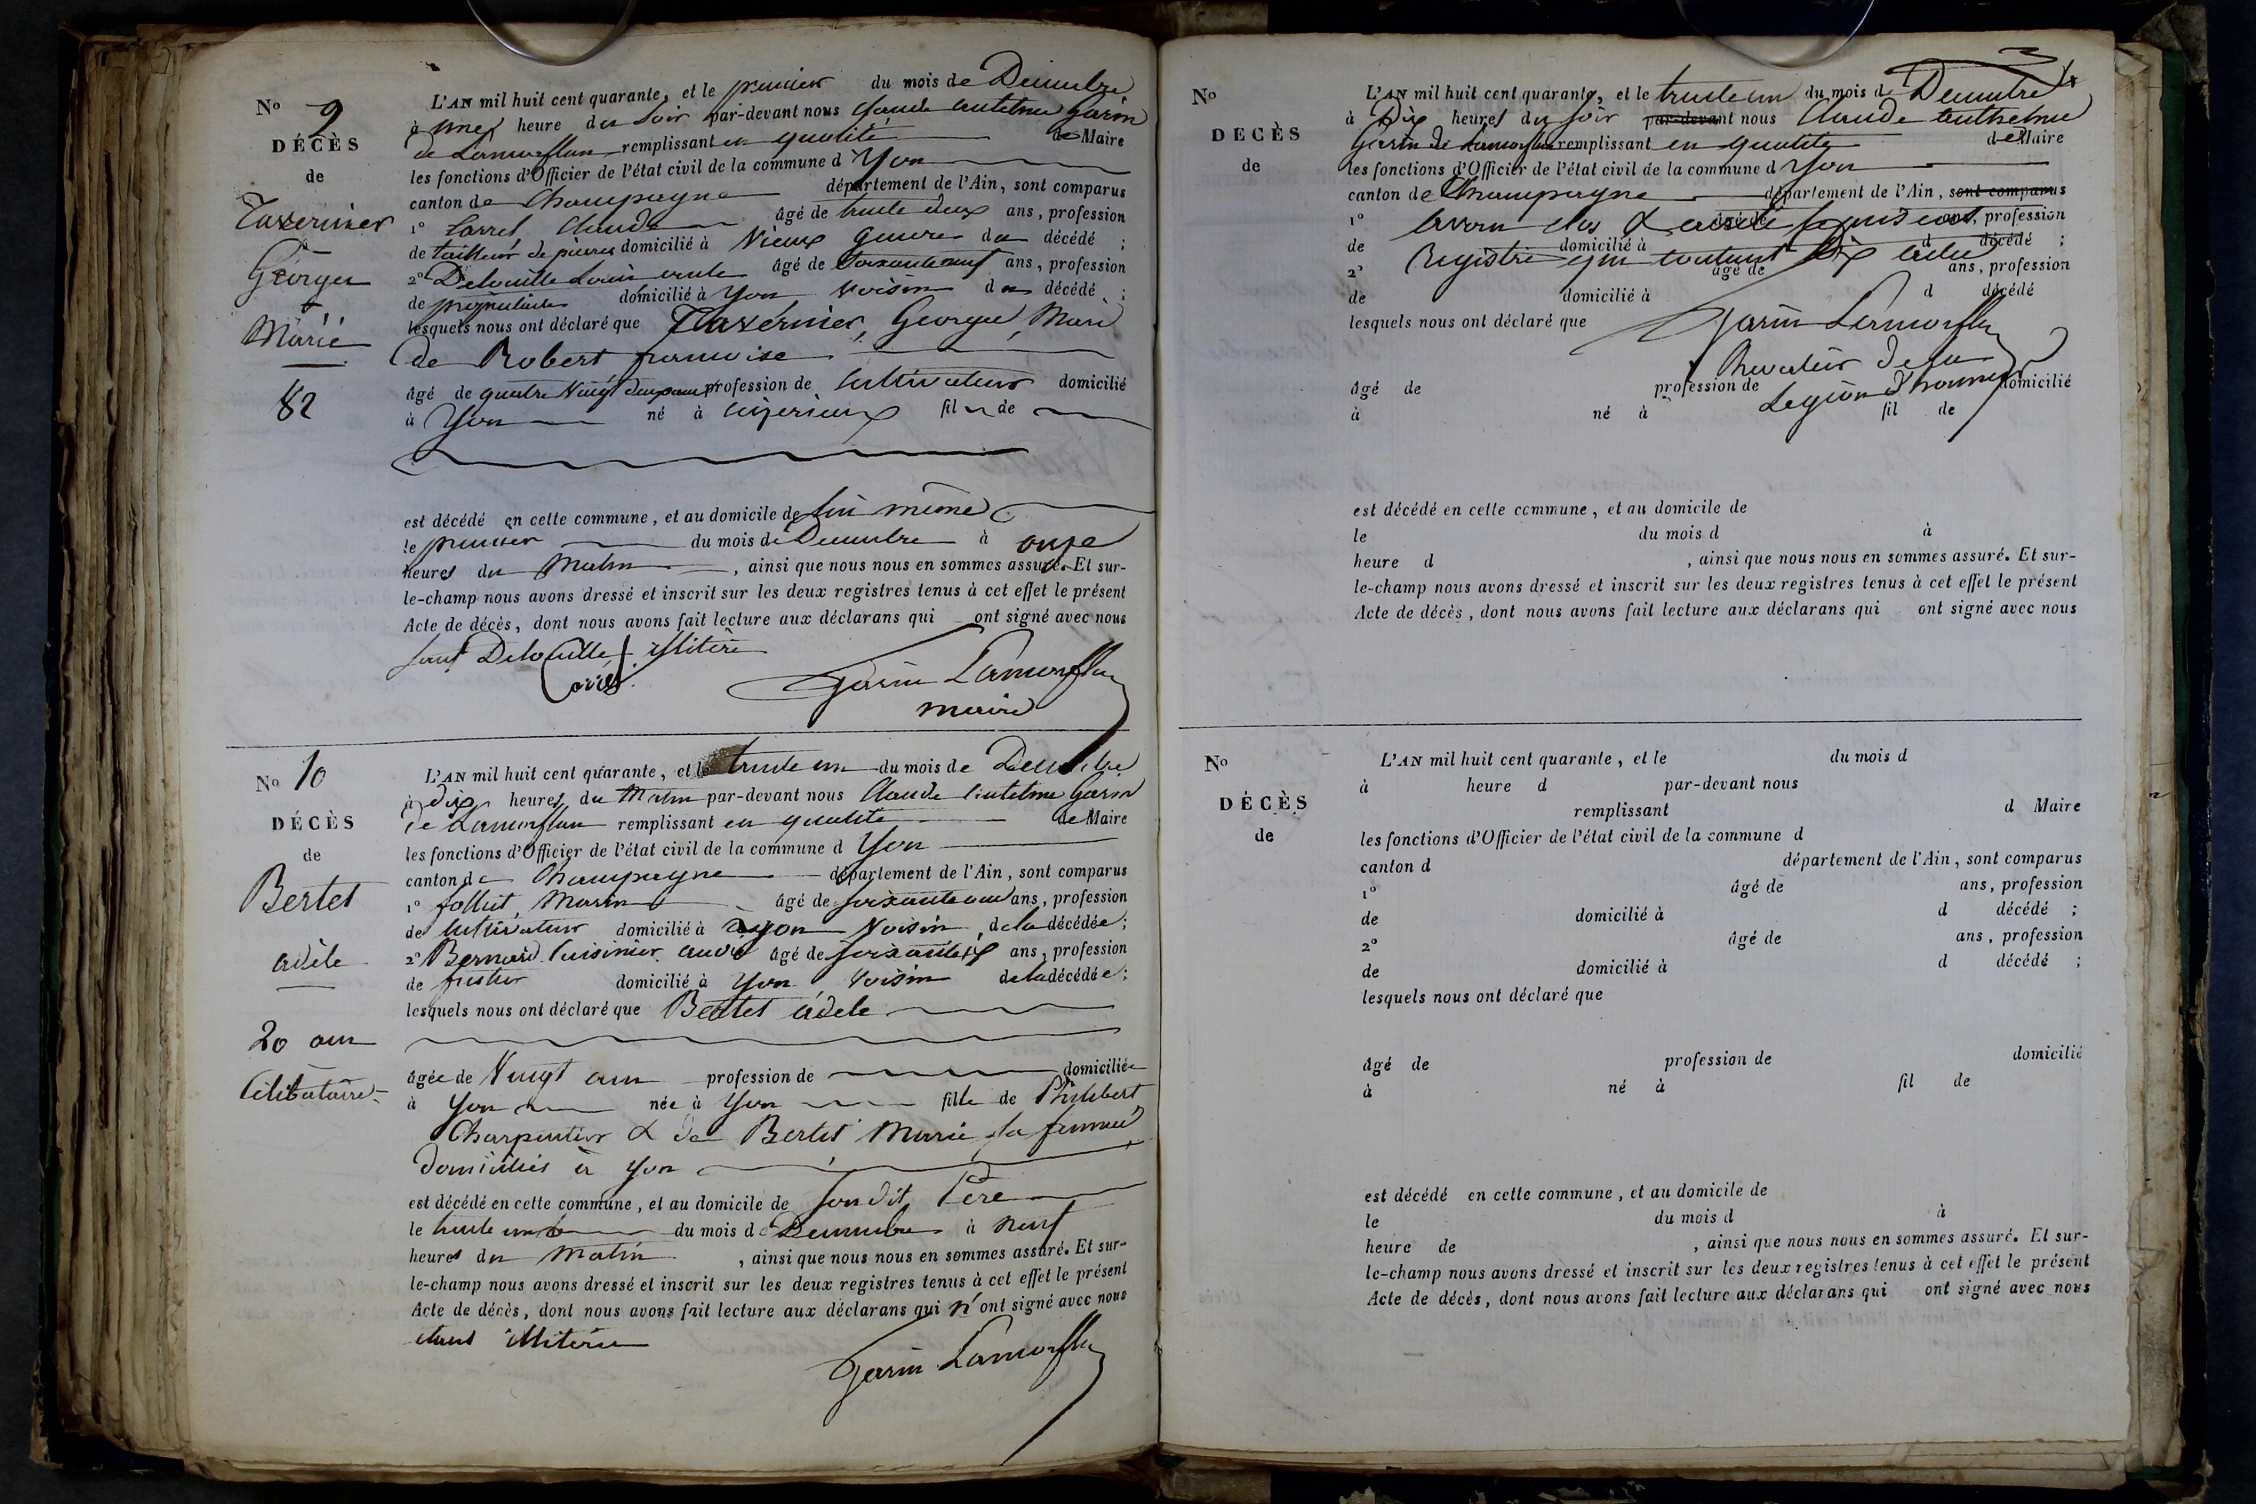 No 9
DÉCÈS
de
Tavernier
George
Marié
82
L'AN mil huit cent quarante, et le premier du mois de Decembre
à une heure du soir par-devant nous Claude Anthelme Garin
de Lamorflan remplissant en qualité de Maire
les fonctions d'Officier de l'état civil de la commune d Yon
canton de Champagne département de l'Ain, sont comparus
1° Carrel Claude âgé de trente deux ans, profession
de tailleur de pierres domicilié à Vieux du décédé ;
2° Delouille Louis âgé de ans, profession
de propriétaire domicilié à Yon voisin du décédé ;
lesquels nous ont déclaré que Tavernier, George, Mari
de Robert francoise
âgé de quatre Vingt deux ans profession de Cultivateur domicilié
à Yon né à fil de
est décédé en cette commune, et au domicile de lui même
le premier du mois de Decembre à onze
heures du Matin, ainsi que nous nous en sommes assuré. Et sur-
le-champ nous avons dressé et inscrit sur les deux registres tenus à cet effet le présent
Acte de décès, dont nous avons fait lecture aux déclarans qui ont signé avec nous
sauf Delouille illitéré
Garin Lamorflan
maire
No 10
DÉCÈS
de
Bertet
adèle
20 ans
Célibataire
L'AN mil huit cent quarante, et le trente un du mois de Decembre
à dix heures du Matin par-devant nous Claude Anthelme Garin
de Lamorflan remplissant en qualité de Maire
les fonctions d'Officier de l'état civil de la commune d Yon
canton de Champagne département de l'Ain, sont comparus
1° follliet, Marin âgé de ans, profession
de Cultivateur domicilié à Yon Voisin de la décédée ;
2° Bernard Cuisinier âgé de ans, profession
de domicilié à Yon Voisin de la décédée ;
lesquels nous ont déclaré que Bertet adele
âgée de Vingt ans profession de domiciliée
à Yon née à Yon fille de Philibert
Charpentier & de Bertet Marie sa femme
Domiciliés à Yon
est décédé en cette commune, et au domicile de son dit Père
le trente un du mois de Decembre à neuf
heures du Matin, ainsi que nous nous en sommes assuré. Et sur-
le-champ nous avons dressé et inscrit sur les deux registres tenus à cet effet le présent
Acte de décès, dont nous avons fait lecture aux déclarans qui n'ont signé avec nous
étant illitéré
Garin Lamorflan
No
DECÈS
de
L'AN mil huit cent quarante, et le trente un du mois de Decembre
à Dix heures du soir par-devant nous Claude Anthelme
Garin de Lamorflan remplissant en qualité de Maire
les fonctions d'Officier de l'état civil de la commune d Yon
canton de Champagne département de l'Ain, sont comparus
1° avons clos & arrêté le présent âgé de ans, profession
de Registre qui contient Dix actes domicilié à d décédé ;
2° âgé de ans, profession
de domicilié à d décédé
lesquels nous ont déclaré que Garin Lamorflan
Chevalier de la
âgé de profession de Legion d'honneur domicilié
à né à fil de
est décédé en cette commune, et au domicile de
le du mois d à
heure d, ainsi que nous nous en sommes assuré. Et sur-
le-champ nous avons dressé et inscrit sur les deux registres tenus à cet effet le présent
Acte de décès, dont nous avons fait lecture aux déclarans qui ont signé avec nous
No
DÉCÈS
de
L'AN mil huit cent quarante, et le du mois d
à heure d par-devant nous
remplissant d Maire
les fonctions d'Officier de l'état civil de la commune d
canton d département de l'Ain, sont comparus
1° âgé de ans, profession
de domicilié à d décédé ;
2° âgé de ans, profession
de domicilié à d décédé ;
lesquels nous ont déclaré que
âgé de profession de domicilié
à né à fil de
est décédé en cette commune, et au domicile de
le du mois d à
heure de, ainsi que nous nous en sommes assuré. Et sur-
le-champ nous avons dressé et inscrit sur les deux registres tenus à cet effet le présent
Acte de décès, dont nous avons fait lecture aux déclarans qui ont signé avec nous